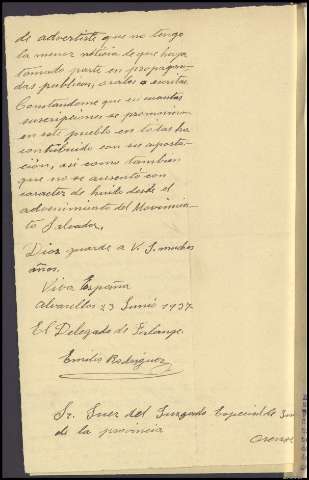 de advertirte que no tengo
la menor noticia de que haya
tomado parte en propagan-
das publicas, orales o escritas
Constandome que en cuantas
suscripciones se promovieron
en este pueblo en todas ha
contribuido con su aporta-
ción, asi como tambien
que no se ausentó con
caracter de huido desde el
advenimiento del Movimien-
to Salvador.
Dios guarde a V. S. muchos
años.
Viva España
Alvarellos 23 Junio 1937.
El Delegado de Falange
Emilio Rodriguez
Sr. Juez del Juzgado Especial de
de la provincia
Orense